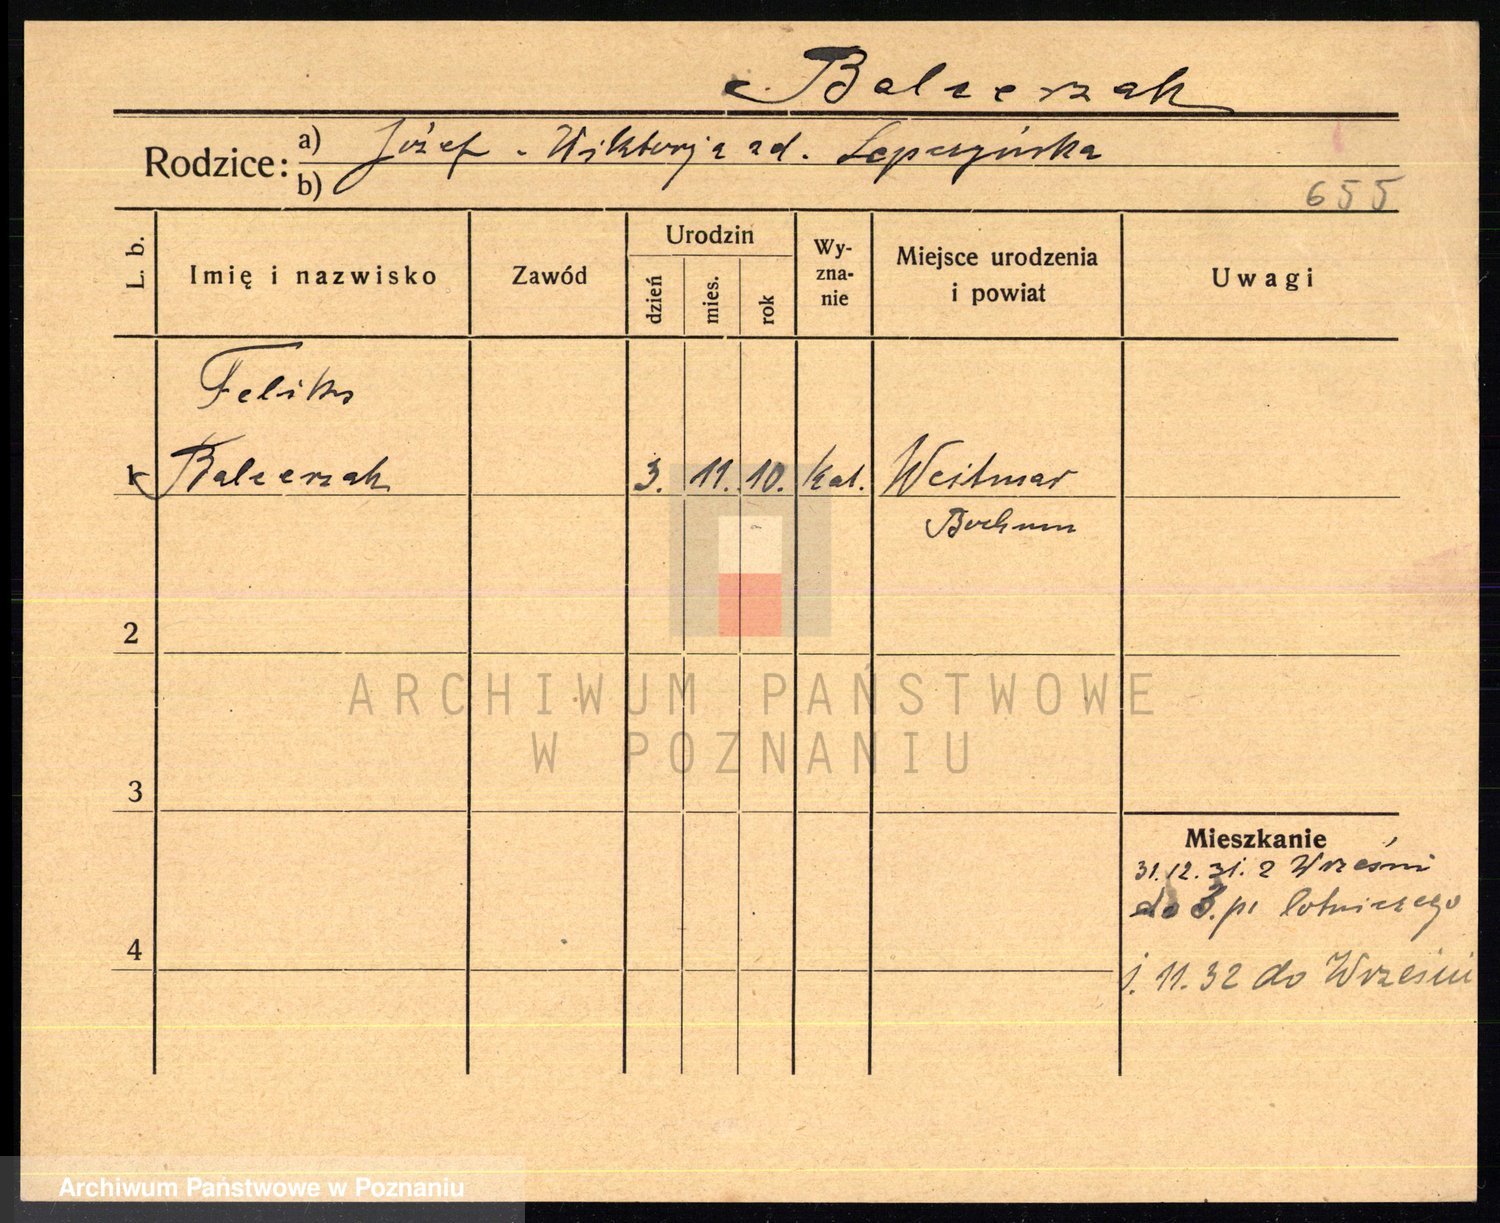 Balcerzak
Rodzice: a) Józef - Wiktorja zd.
b)
655
L. b.
Imię i nazwisko
Zawód
Urodzin
dzień
mies.
rok
Wy-
zna-
nie
Miejsce urodzenia
i powiat
Uwagi
Feliks
1 Balcerzak 3. 11. 10. kat. Weitmar
Bochum
2
ARCHIWUM PAŃSTWOWE
W POZNANIU
3
Mieszkanie
31.12.31. z Wrześni
do 3. pł lotniczego
4
1. 11. 32 do Wrześni
Archiwum Państwowe w Poznaniu